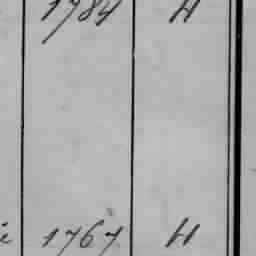 1784 H
1767 H